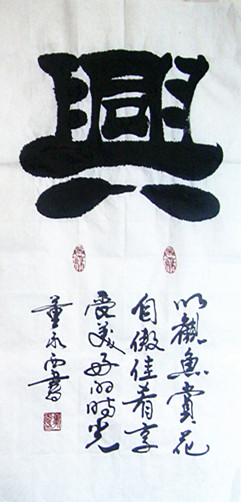 興
以觀魚賞花
自做佳肴享
受美好的時光
董永西書